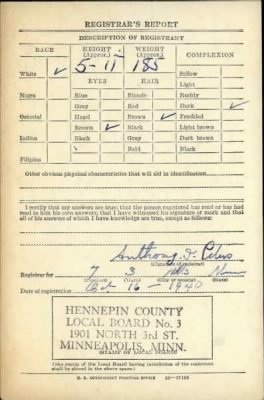 REGISTRAR'S REPORT
DESCRIPTION OF REGISTRANT
RACE HEIGHT (Approx.) WEIGHT (Approx.) COMPLEXION
White ✓ 5-11 185 Sallow
EYES HAIR Light
Negro Blue Blonde Ruddy
Gray Red Dark ✓
Oriental Hazel Brown ✓ Freckled
Brown ✓ Black Light brown
Indian Black Gray Dark brown
Bald Black
Filipino
Other obvious physical characteristics that will aid in identification
I certify that my answers are true; that the person registered has read or has had
read to him his own answers; that I have witnessed his signature or mark and that
all of his answers of which I have knowledge are true, except as follows:
Anthony J. Peters
(Signature of registrar)
Registrar for 7 3 Mpls Minn
(Precinct) (Ward) (City or county) (State)
Date of registration Oct 16 - 1940
HENNEPIN COUNTY
LOCAL BOARD No. 3
1901 NORTH 3rd ST.
MINNEAPOLIS, MINN.
(STAMP OF LOCAL BOARD)
(The stamp of the Local Board having jurisdiction of the registrant
shall be placed in the above space.)
U. S. GOVERNMENT PRINTING OFFICE 16-17105